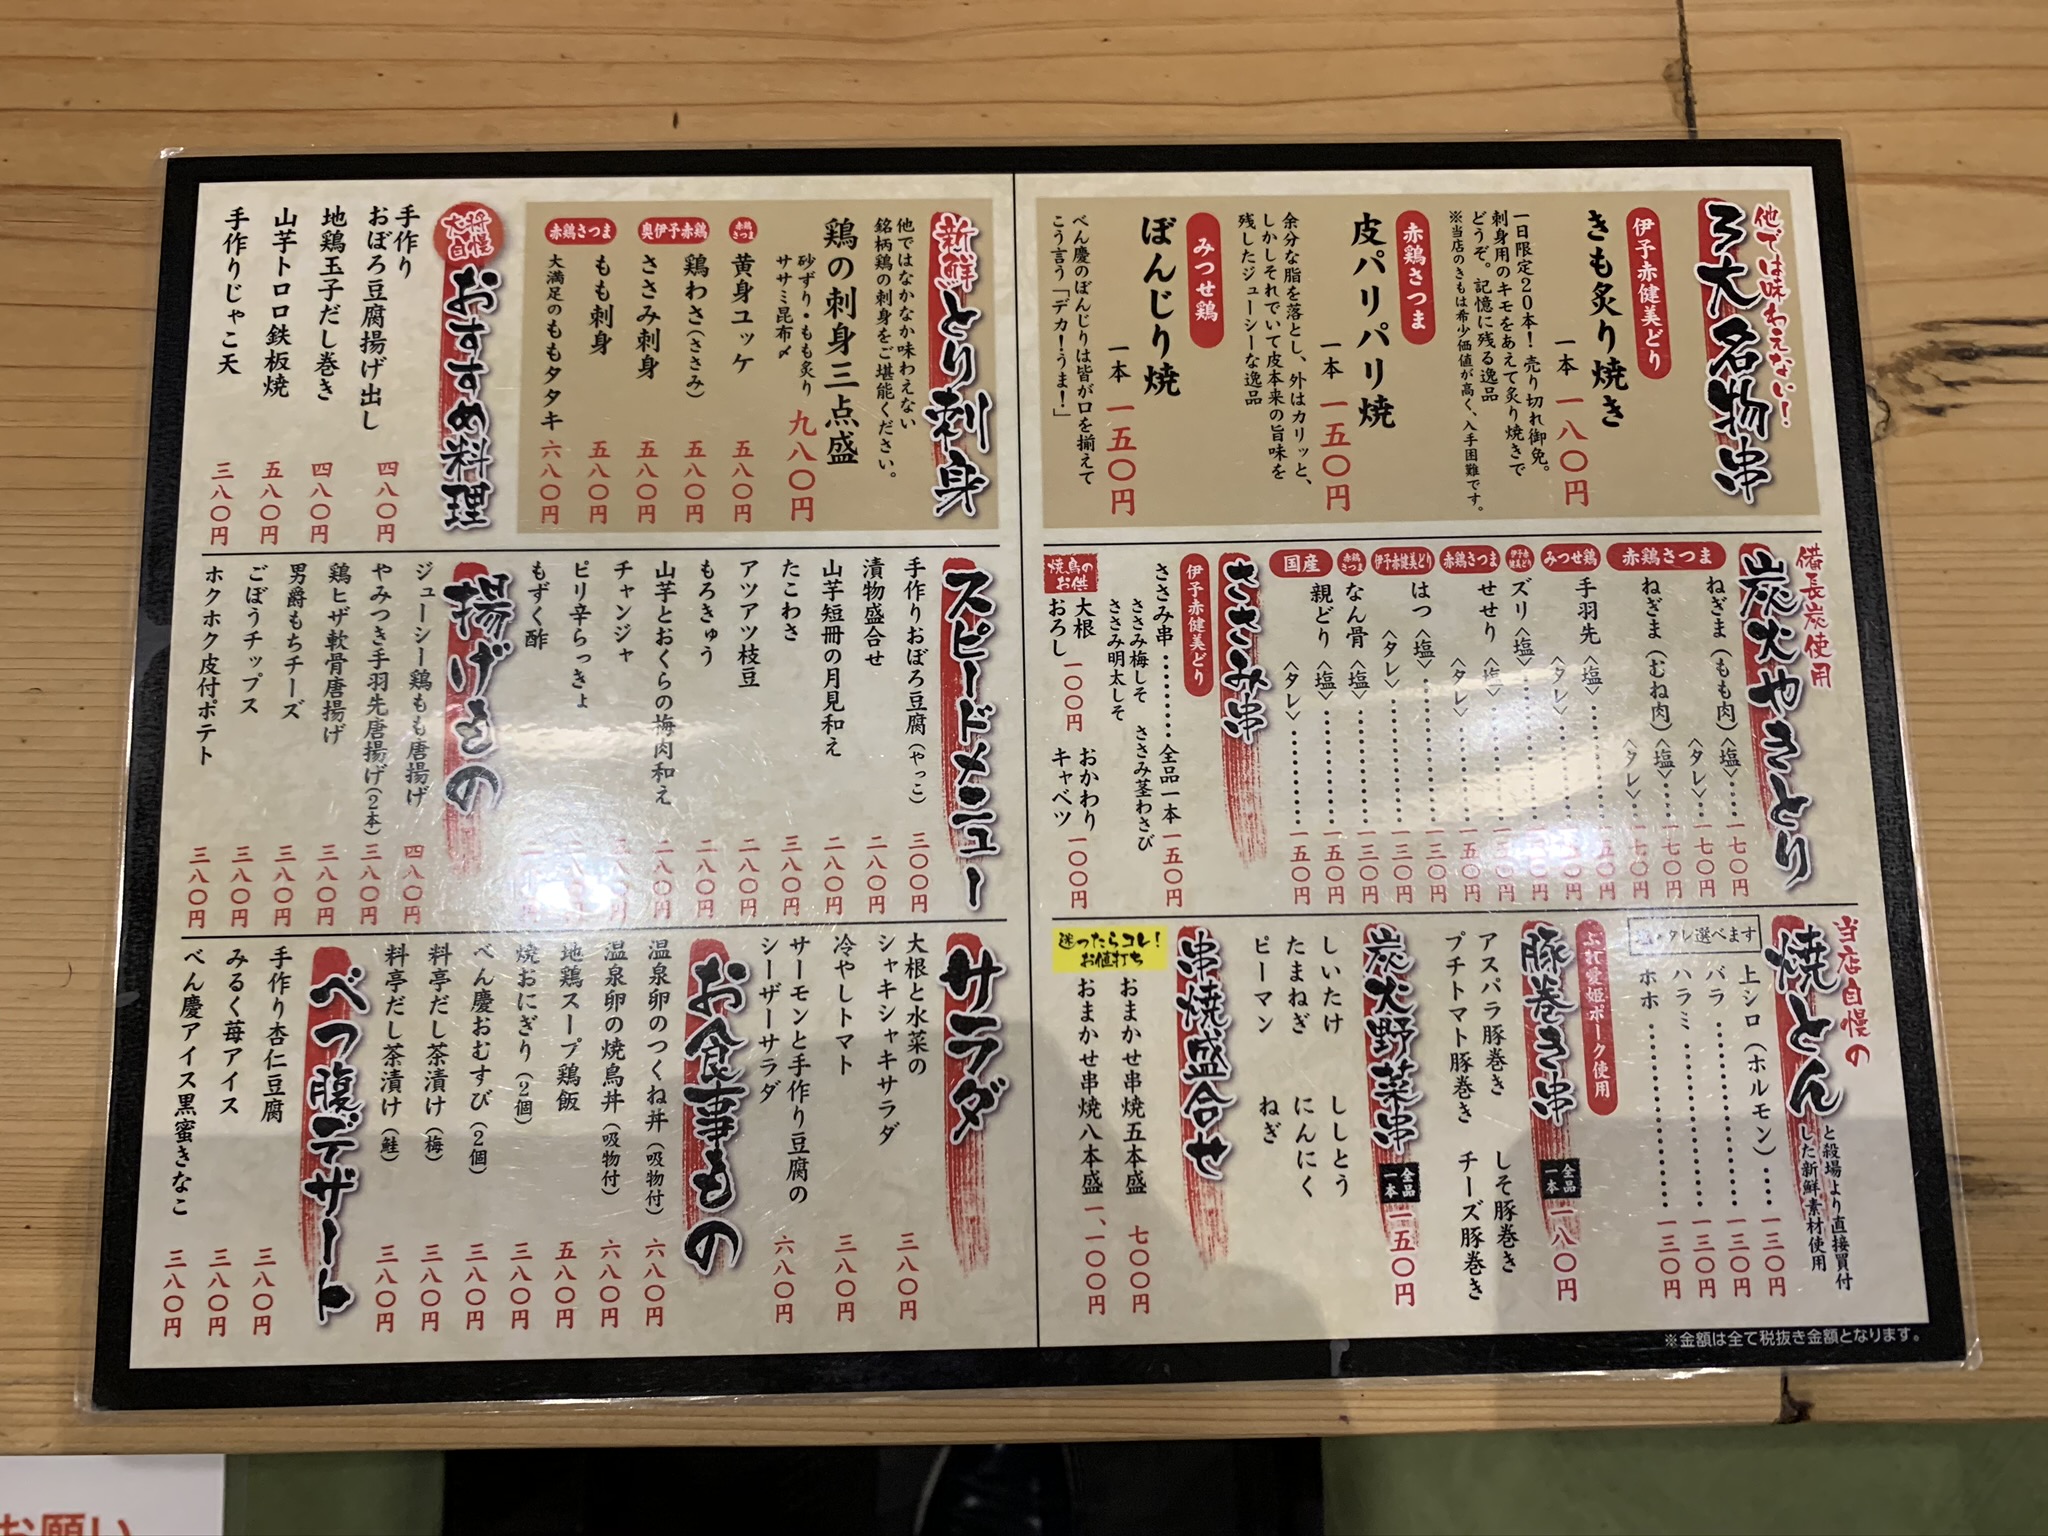 他では味わえない！
3大名物串
伊予赤健美どり
きも炙り焼き
一本 一八〇円
一日限定20本！売り切れ御免。
刺身用のキモをあえて炙り焼きで
どうぞ。記憶に残る逸品
※当店のきもは希少価値が高く、入手困難です。
赤鶏さつま
皮パリパリ焼
一本 一五〇円
余分な脂を落とし、外はカリッと、
しかしそれでいて皮本来の旨味を
残したジューシーな逸品
みつせ鶏
ぼんじり焼
一本 一五〇円
べん慶のぼんじりは皆が口を揃えて
こう言う「デカ！うま！」
備長炭使用
炭火やきとり
赤鶏さつま
ねぎま（もも肉）〈塩〉 一七〇円
〈タレ〉 一七〇円
ねぎま（むね肉）〈塩〉 一七〇円
〈タレ〉 一七〇円
みつせ鶏
手羽先〈塩〉 一五〇円
〈タレ〉
伊予赤健美どり
ズリ〈塩〉
赤鶏さつま
せせり〈塩〉 一五〇円
〈タレ〉 一五〇円
伊予赤健美どり
はつ〈塩〉 一三〇円
〈タレ〉 一三〇円
赤鶏さつま
なん骨〈塩〉 一三〇円
国産
親どり〈塩〉 一五〇円
〈タレ〉 一五〇円
ささみ串
伊予赤健美どり
ささみ串 全品一本 一五〇円
ささみ梅しそ ささみ茎わさび
ささみ明太しそ
焼鳥のお供
大根おろし 一〇〇円
おかわりキャベツ 一〇〇円
当店自慢の
焼とん
と殺場より直接買付
した新鮮素材使用
塩・タレ選べます
上シロ（ホルモン） 一三〇円
バラ 一三〇円
ハラミ 一三〇円
ホホ 一三〇円
ふれ愛姫ポーク使用
豚巻き串
全品一本 一八〇円
アスパラ豚巻き しそ豚巻き
プチトマト豚巻き チーズ豚巻き
炭火野菜串
全品一本 一五〇円
しいたけ ししとう
たまねぎ にんにく
ピーマン ねぎ
串焼盛合せ
迷ったらコレ！
お値打ち
おまかせ串焼五本盛 七〇〇円
おまかせ串焼八本盛 一、一〇〇円
※金額は全て税抜き金額となります。
新鮮とり刺身
他ではなかなか味わえない
銘柄鶏の刺身をご堪能ください。
鶏の刺身三点盛
砂ずり・もも炙り
ササミ昆布〆
九八〇円
赤鶏さつま
黄身ユッケ 五八〇円
奥伊予赤鶏
鶏わさ（ささみ） 五八〇円
ささみ刺身 五八〇円
赤鶏さつま
もも刺身 五八〇円
大満足のももタタキ 六八〇円
大将自慢
おすすめ料理
手作り
おぼろ豆腐揚げ出し 四八〇円
地鶏玉子だし巻き 四八〇円
山芋トロロ鉄板焼 五八〇円
手作りじゃこ天 三八〇円
スピードメニュー
手作りおぼろ豆腐（やっこ） 三〇〇円
漬物盛合せ 二八〇円
山芋短冊の月見和え 二八〇円
たこわさ 三八〇円
アツアツ枝豆 二八〇円
もろきゅう 二八〇円
山芋とおくらの梅肉和え 二八〇円
チャンジャ
ピリ辛らっきょ
もずく酢
揚げもの
ジューシー鶏もも唐揚げ 四八〇円
やみつき手羽先唐揚げ（2本） 三八〇円
鶏ヒザ軟骨唐揚げ 三八〇円
男爵もちチーズ 三八〇円
ごぼうチップス 三八〇円
ホクホク皮付ポテト 三八〇円
サラダ
大根と水菜の
シャキシャキサラダ 三八〇円
冷やしトマト 三八〇円
サーモンと手作り豆腐の
シーザーサラダ 六八〇円
お食事もの
温泉卵のつくね丼（吸物付） 六八〇円
温泉卵の焼鳥丼（吸物付） 六八〇円
地鶏スープ鶏飯 五八〇円
焼おにぎり（2個） 三八〇円
べん慶おむすび（2個） 三八〇円
料亭だし茶漬け（梅） 三八〇円
料亭だし茶漬け（鮭） 三八〇円
べつ腹デザート
手作り杏仁豆腐 三八〇円
みるく苺アイス 三八〇円
べん慶アイス黒蜜きなこ 三八〇円
お願い